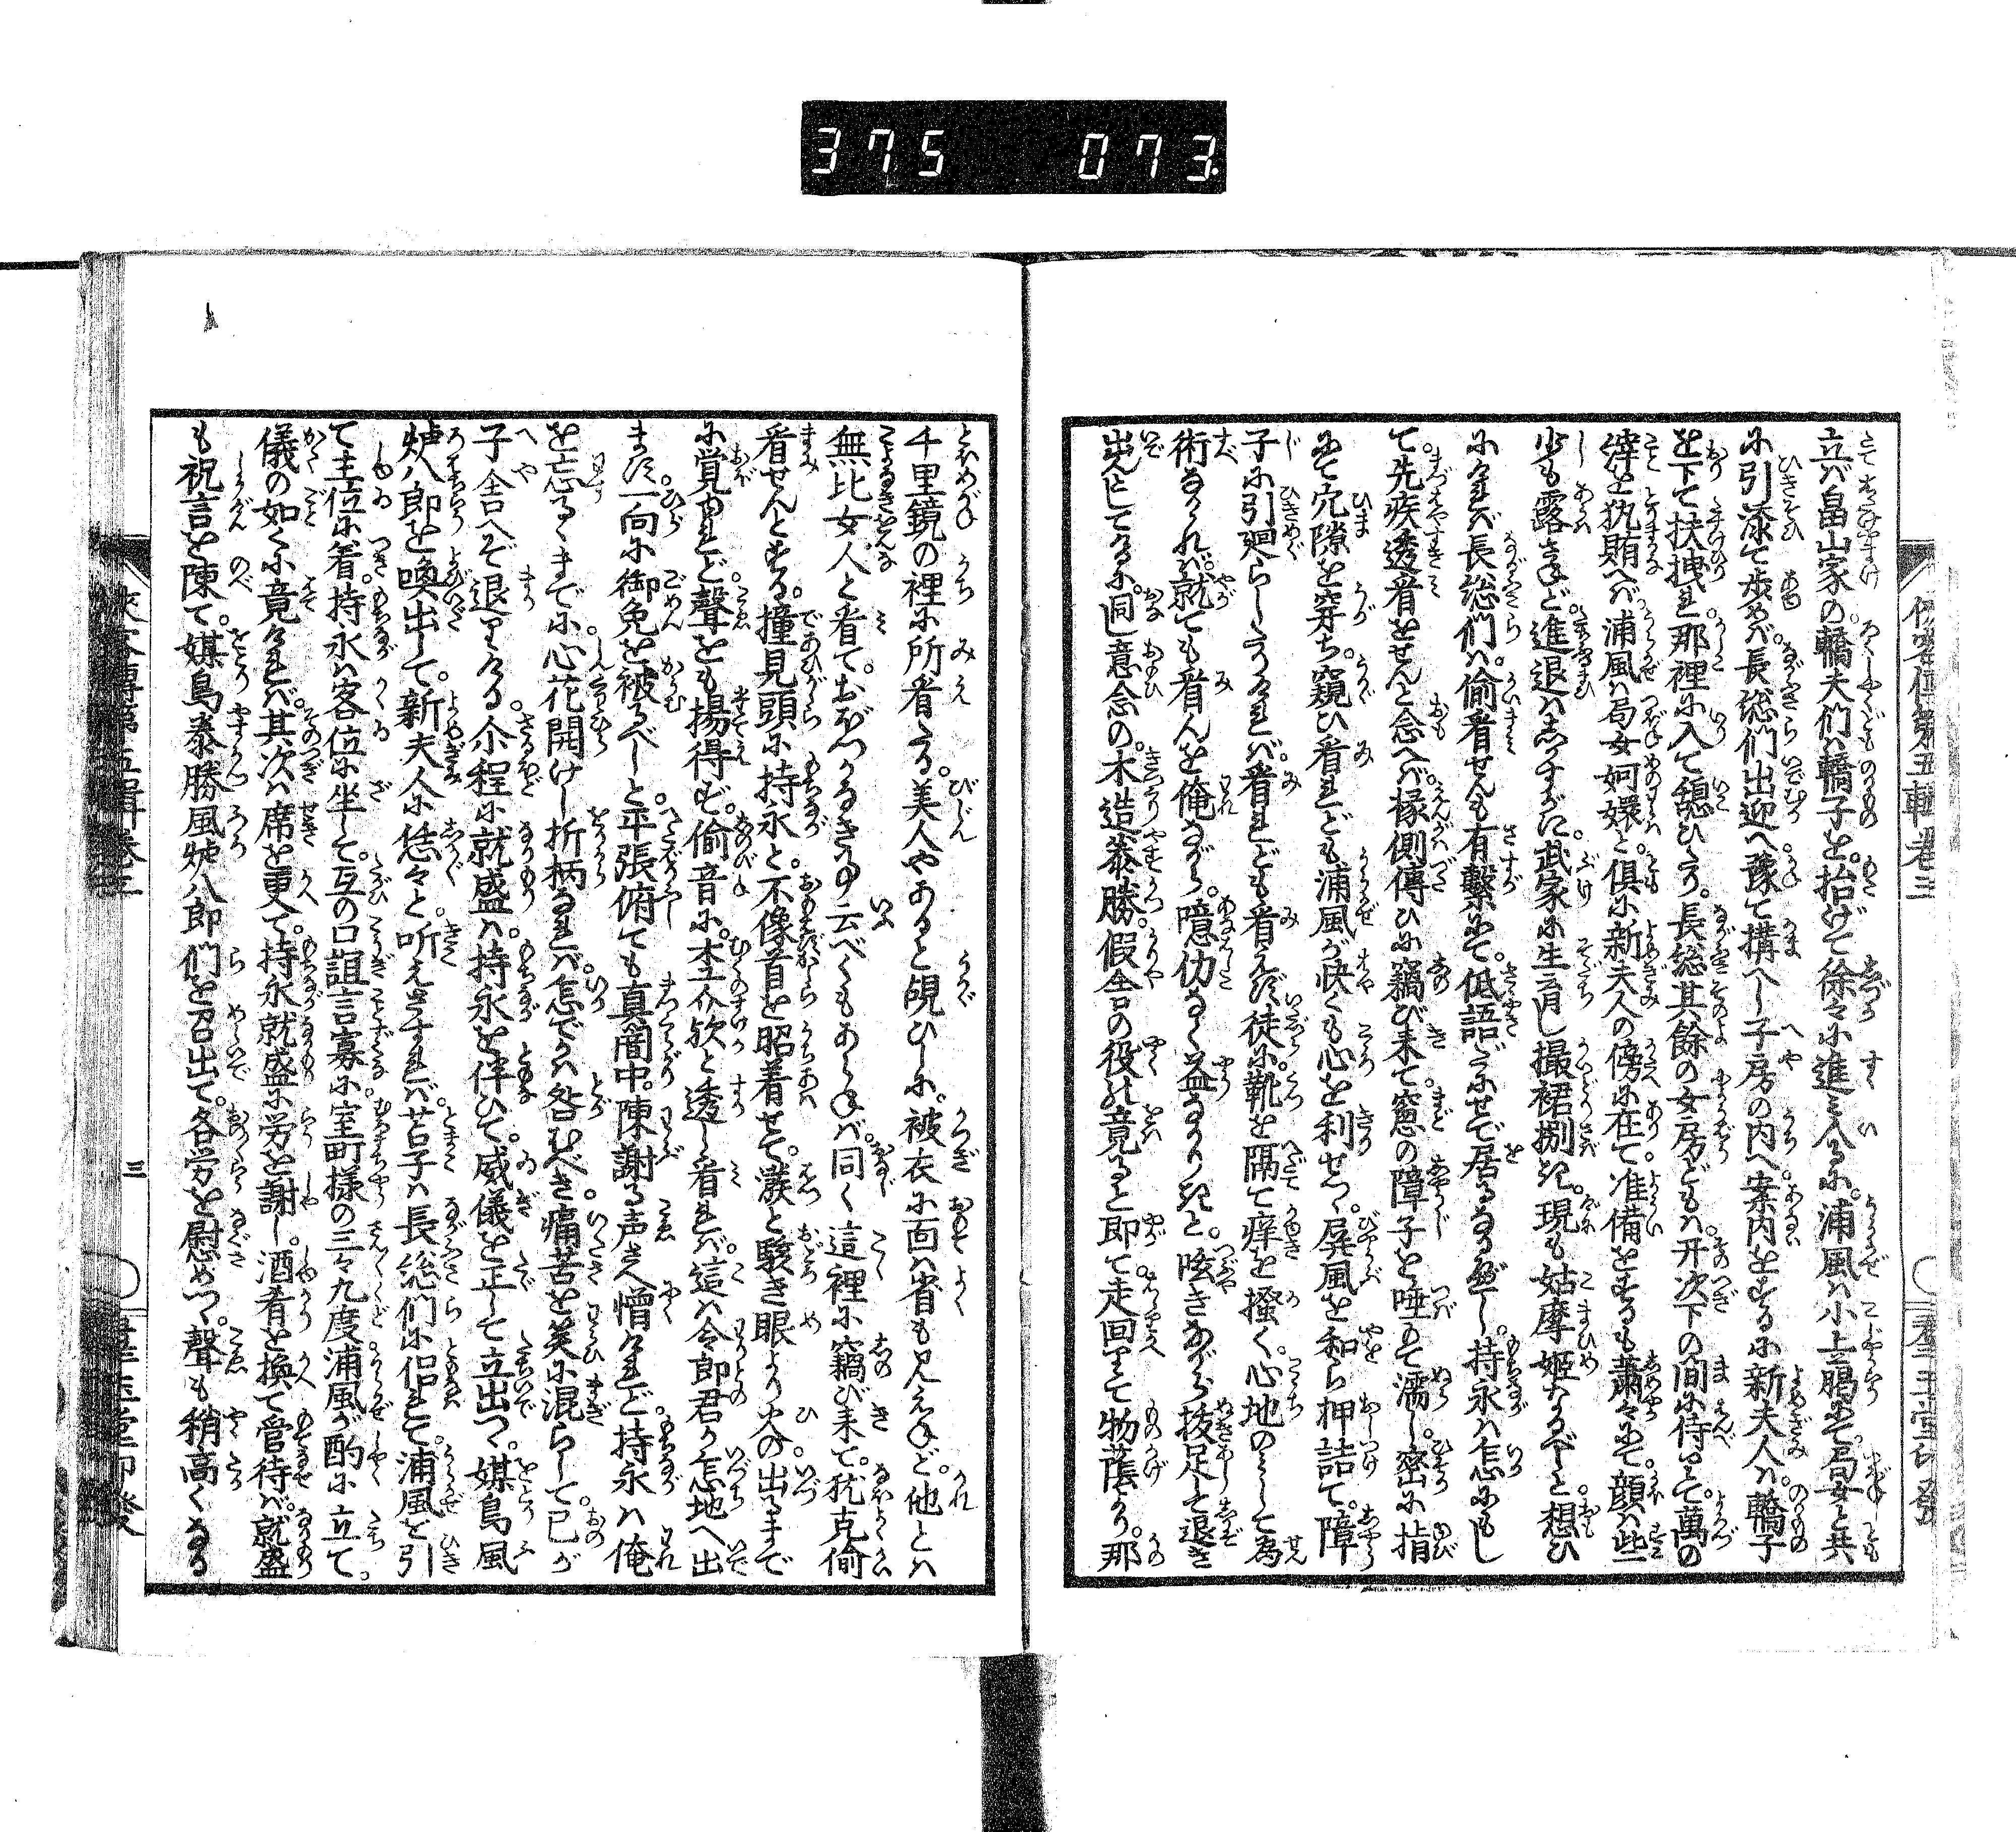 375 073
立バ畠山家の。轎夫們ハ轎子を。抬げて徐々に進ミ入るに。浦風ハ小上﨟にて。局女と共
に引添て歩めバ。長総們出迎へ。豫て搆へし子房の内へ。案内をするに新夫人ハ。轎子
を下て扶掖れ。那裡に入て憩ひけり。長総其餘の女房どもハ。开次下の間に侍りて。萬の
縡を執賄へバ。浦風ハ局女婀嬛と。俱に新夫人の傍に在て。准備をするも蕭々にて。顔ハ些
少も露さねど。進退ハしかすがに。武家に生育し撮裙捌き。現も姑摩姫なるべしと想ひ
にけれバ。長総們ハ。偷看せんも有繋にて。低語だにせで居るなるべし。持永ハ怎にもし
て。先疾透看をせんと念へバ。椽側傳ひに竊び来て。窓の障子を唾もて濡し。密に指
にて穴隙を穿ち。窺ひ看れども浦風が快くも心を利せつゝ。屏風を和ら押詰て。障
子に引廻らしたりけれバ。看れども看えず徒に。靴を隔て痒を搔く。心地のミして為
術なけれバ。就ても看んを俺ながら。噫仂なく益なかりきと。呟きながら抜足して退き
出んとしてけるに。同じ意念の。木造泰勝。假全の役既竟ると即て走回りて物蔭より。那
千里鏡の裡に所看たる。美人やあると覘ひしに。被衣に面ハ省も見えねど。他とハ
無比女人と看て。おぼつかなき事云べくもあらねバ。同く這裡に竊び来て。犹克偷
看せんとする。撞見頭に持永と。不像首を昭着せて。潑と駭き眼より火の出るまで
に覚ゆれど。聲をも揚得ず。偷音に。杢介欤と透し看れバ。這ハ令郎君か怎地へ出
ます。一向に御免を被るべしと。平張俯ても真闇中。陳謝る声さへ憎けれど。持永ハ俺
を忘るゝまでに。心花開けし折柄なれバ。怎でかハ咎むべき。痛苦を笑に混らして。已が
子舎へぞ退りける。尒程に就盛ハ。持永を伴ひて。威儀を正して立出つゝ。媒鳥風
炉八郎を喚出して。新夫人に恁々と。听えさすれバ。苫子ハ長総們に侶れて。浦風を引
て主位に着。持永ハ客位に坐して。互の口誼言寡に。室町様の三々九度。浦風が酌に立て。
儀の如くに竟けれバ。其次ハ席を更て。持永就盛に労を謝し。酒肴を換て管待バ。就盛
も祝言を陳て。媒鳥泰勝風炉八郎們を召出て。各労を慰めつゝ。聲も稍高くなる
三